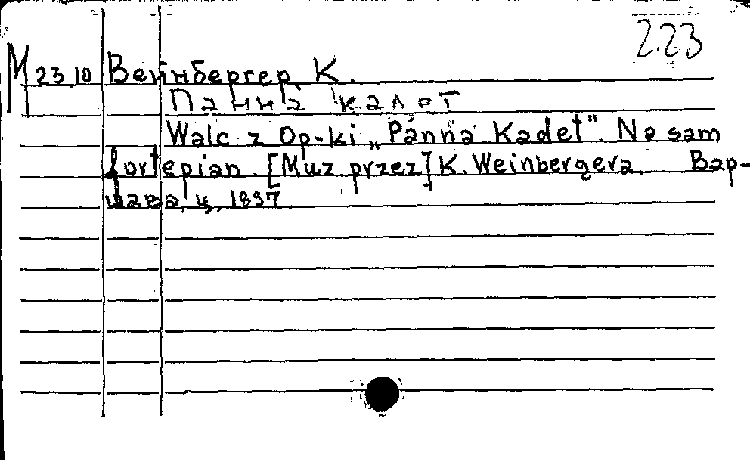 223
M 23 10 Вейнбергер К.
Панна кадет
Walc z Op-ki „Panna Kadet". Na sam
fortepian. [Muz przez] K. Weinbergera. Вар-
шава, ц, 1897